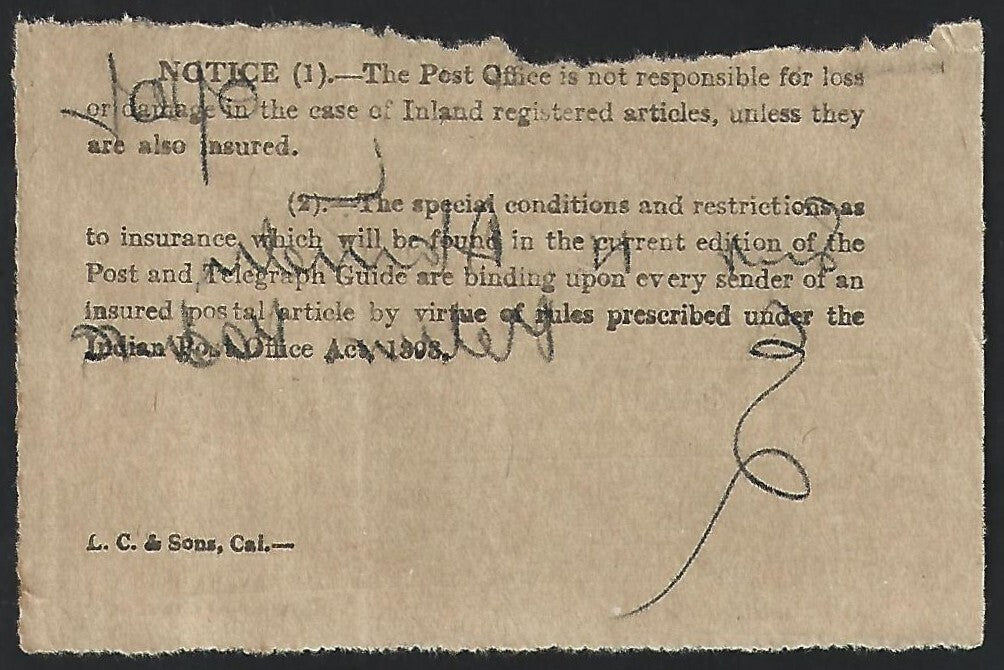 NOTICE (1).—The Post Office is not responsible for loss
or damage in the case of Inland registered articles, unless they
are also insured.
(2).—The special conditions and restrictions as
to insurance which will be found in the current edition of the
Post and Telegraph Guide are binding upon every sender of an
insured postal article by virtue of rules prescribed under the
Indian Post Office Act, 1898.
L. C. & Sons, Cal.—